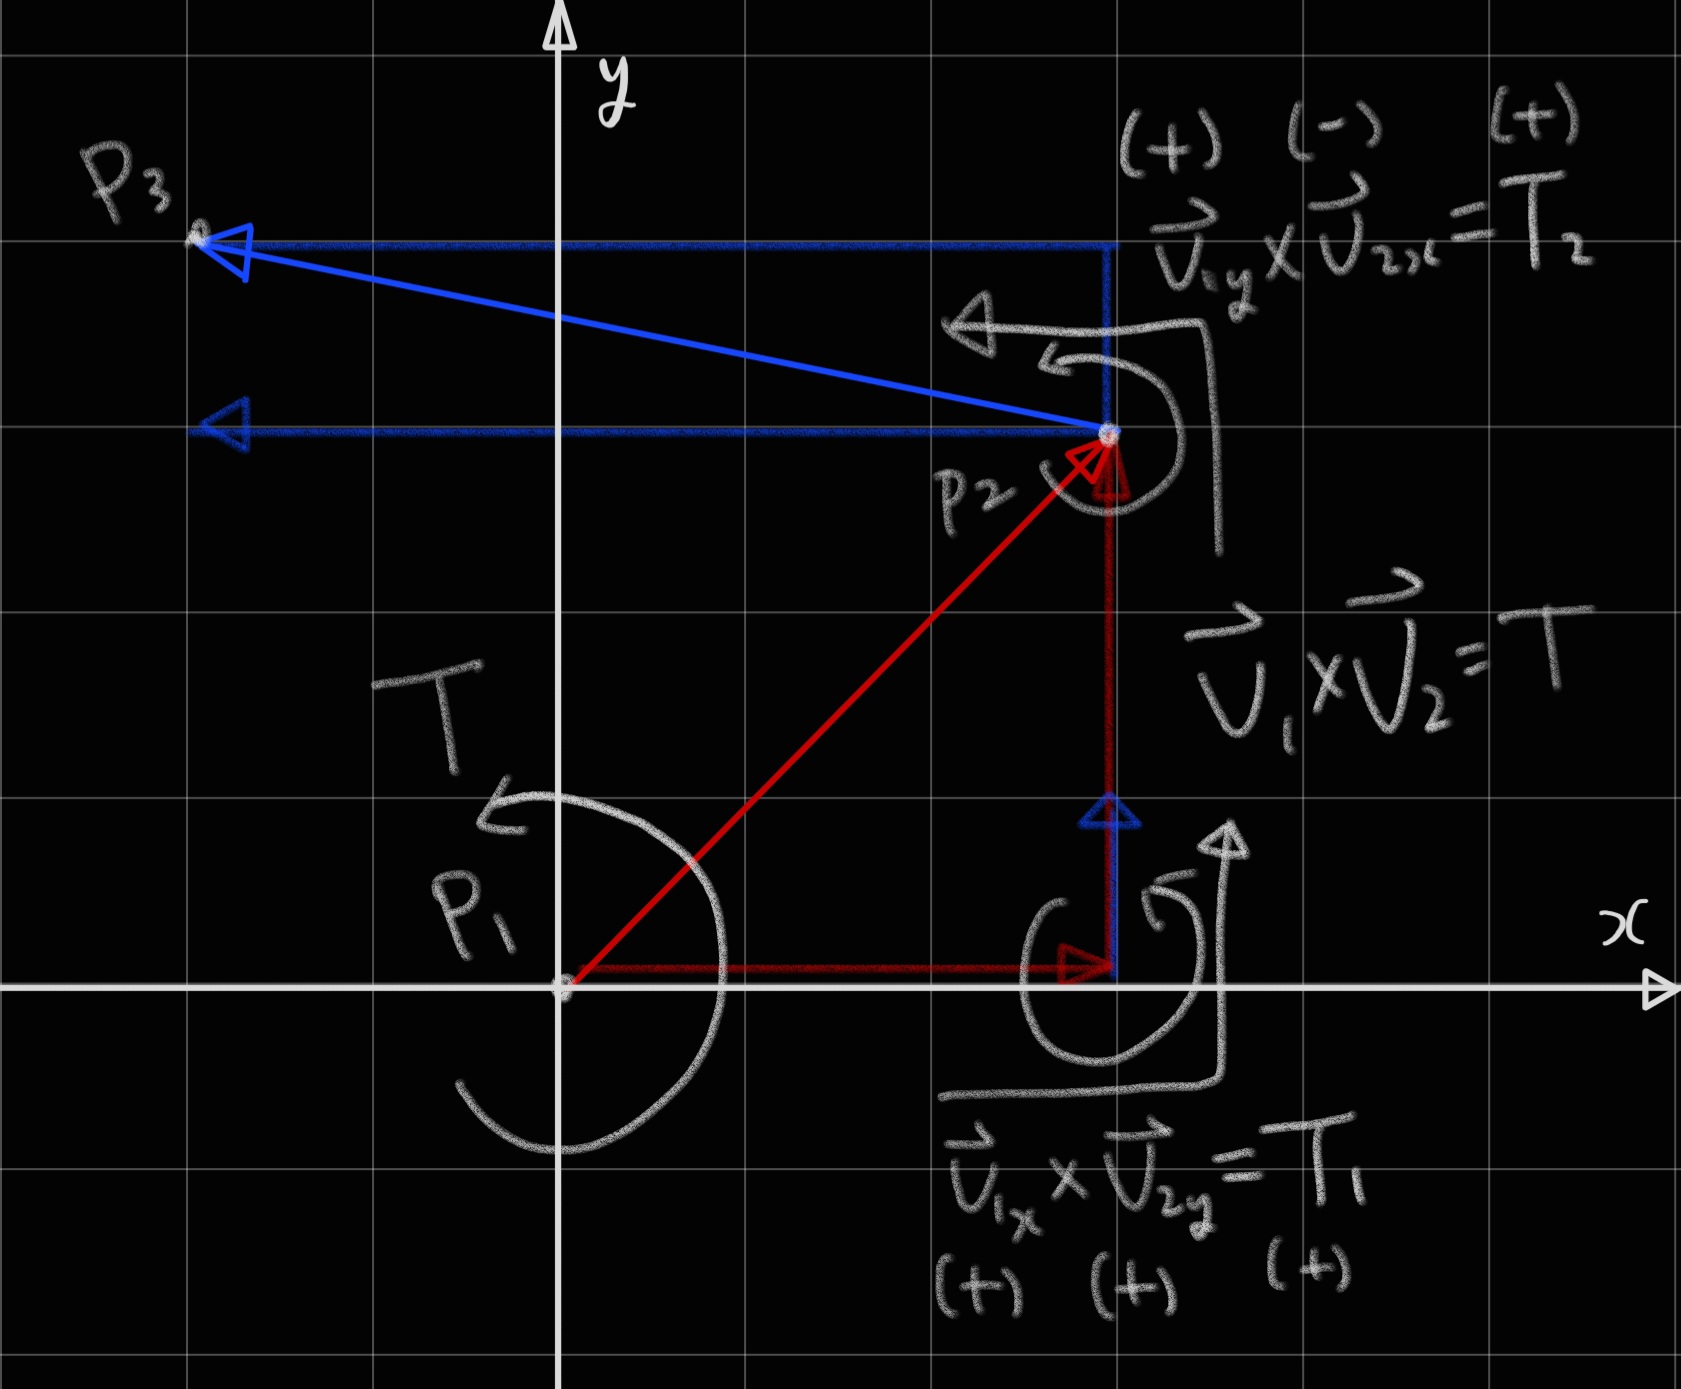 y
P3
(+) (-) (+)
V1y × V2x = T2
P2
V1 × V2 = T
T
P1
x
V1x × V2y = T1
(+) (+) (+)